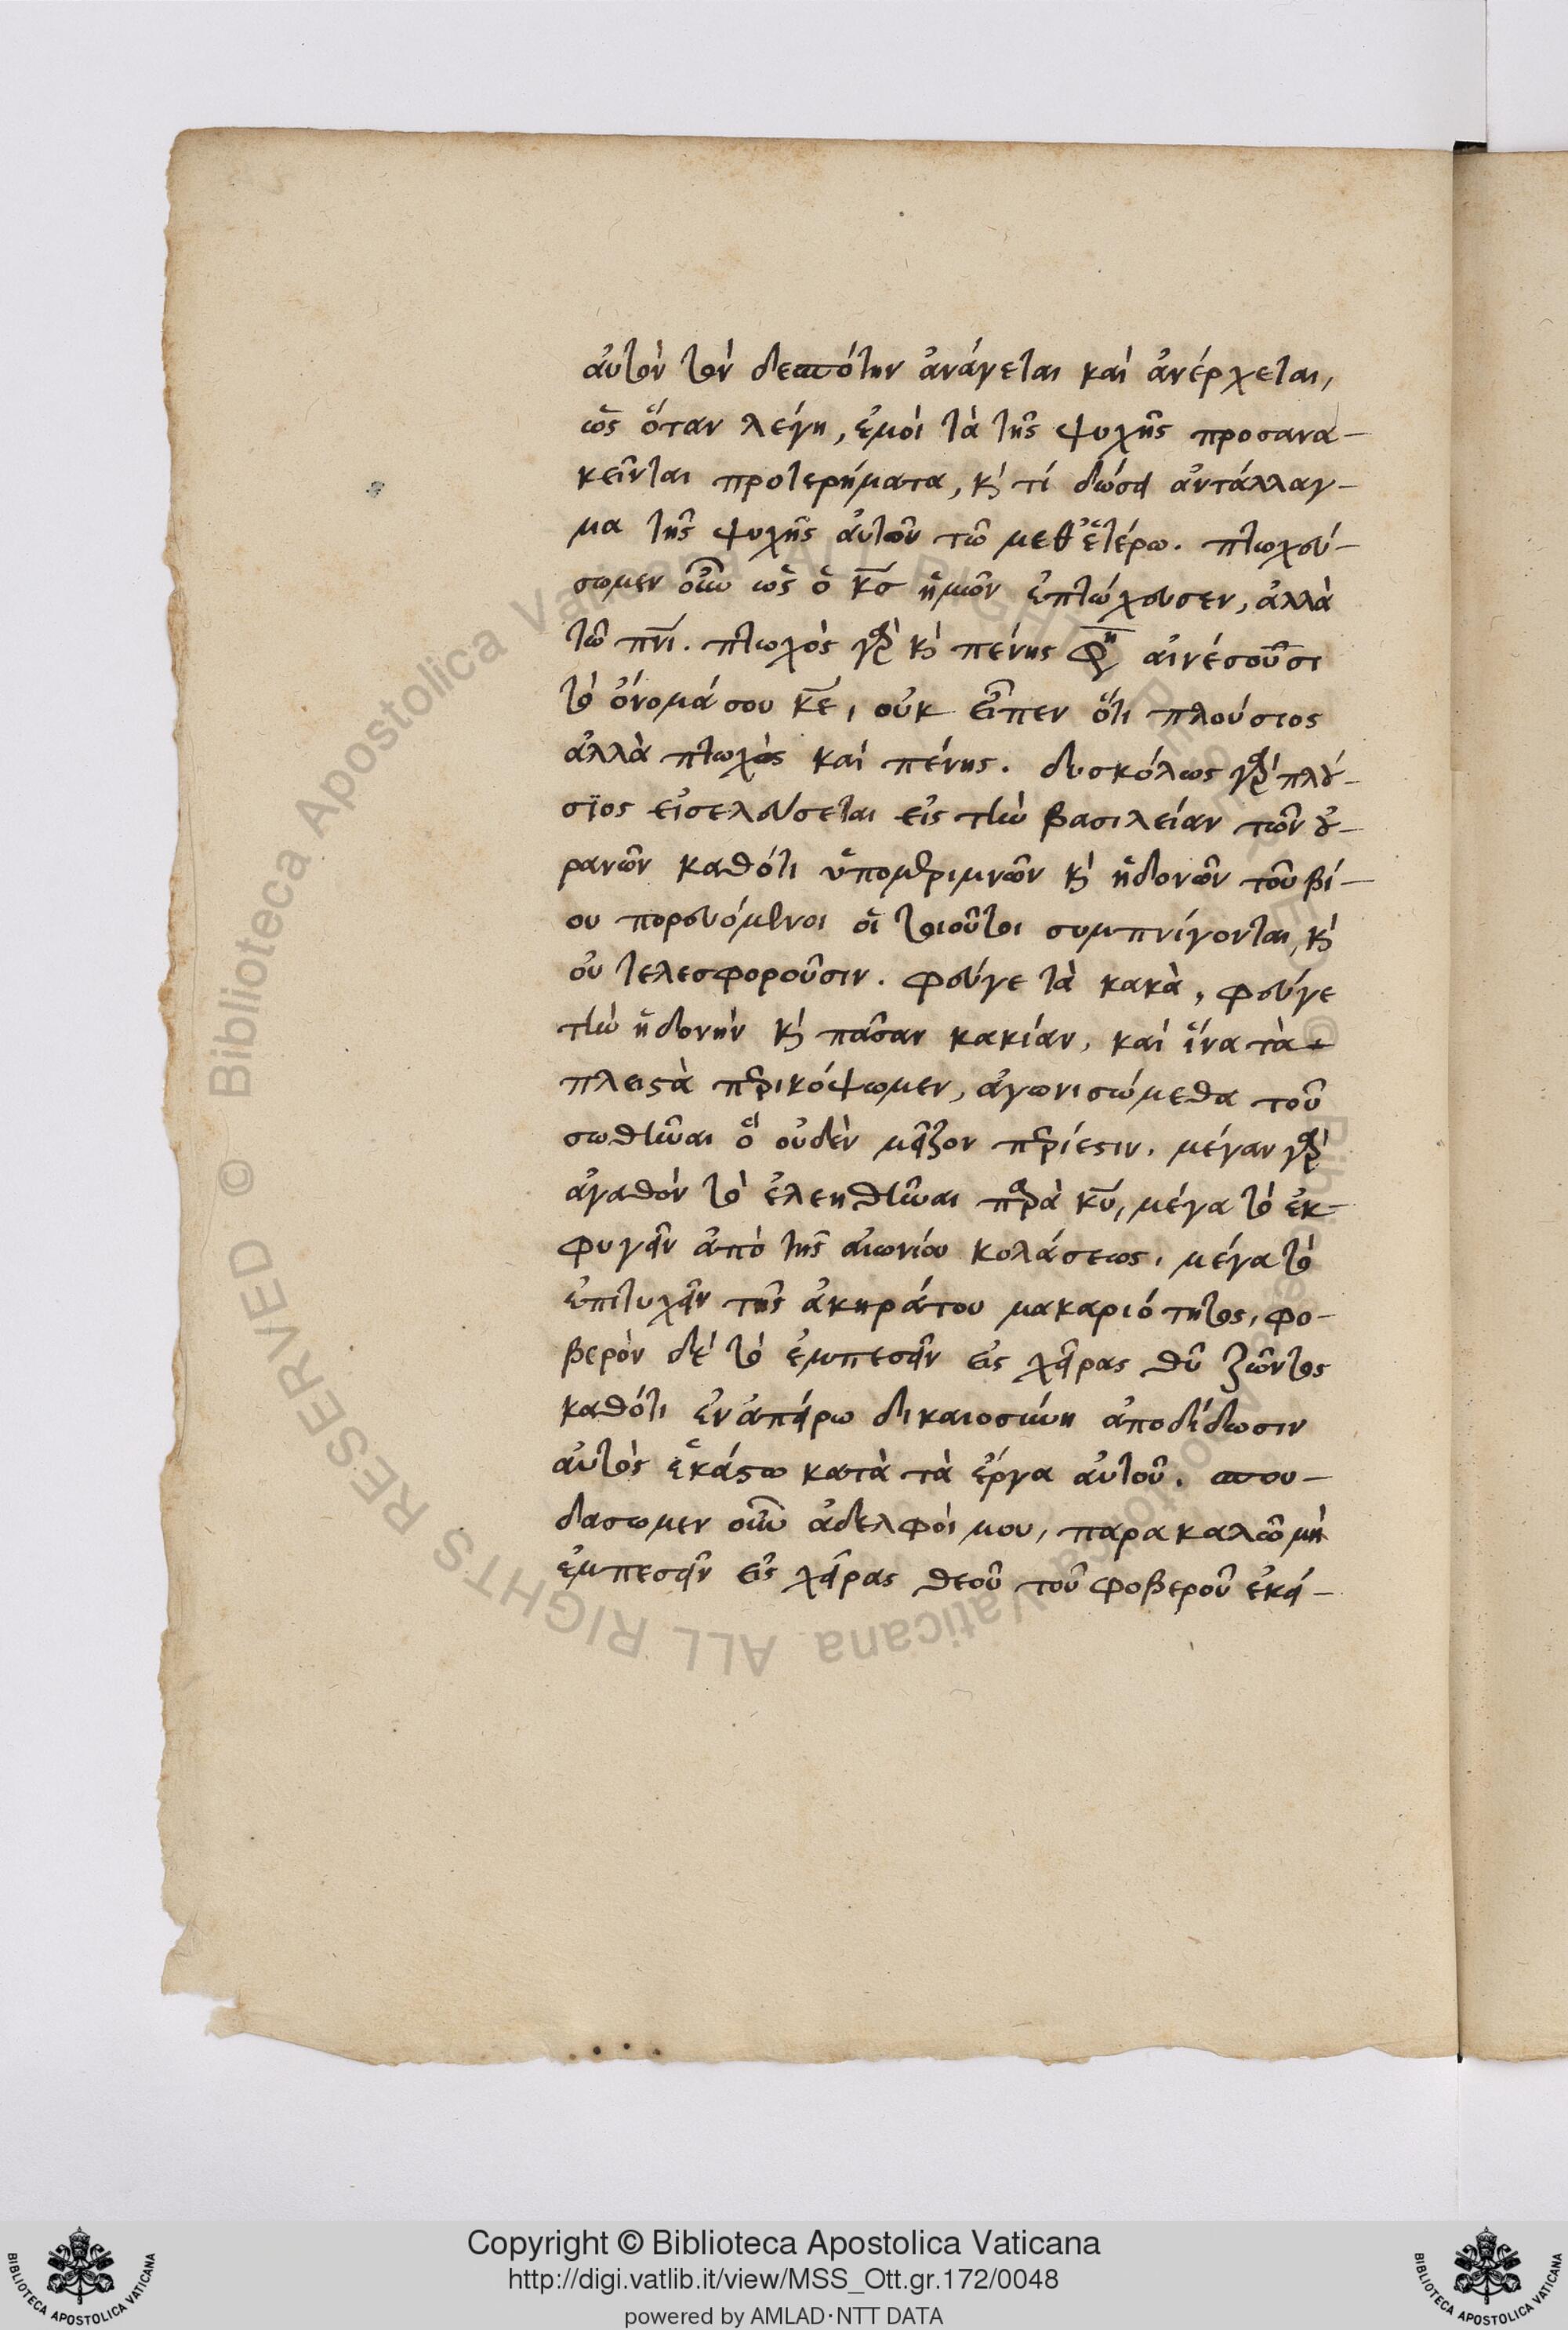 αὐτὸν τὸν δεσπότην ἀνάγεται καὶ ἀνέρχεται,
ὡς ὅταν λέγη, ἐμοὶ τὰ τῆς ψυχῆς προσανα-
κεῖνται προτερήματα, κ̀ τί δώσει ἀντάλλαγ-
μα τῆς ψυχῆς αὐτῶν τῶ μεθ᾽ ἑτέρω. πτωχεύ-
σωμεν οὖν ὡς ὁ κ̅ς ἡμῶν ἐπτώχευσεν, ἀλλὰ
τῶ πν̅ι. πτωχὸς γὰρ κ̀ πένης αἰνέσουσι
τὸ ὄνομά σου κ̅ε, οὐκ εἶπεν ὅτι πλούσιος
ἀλλὰ πτωχὸς καὶ πένης. δυσκόλως γὰρ πλού-
σϊος εἰσελεύσεται εἰς τὴν βασιλείαν τῶν οὐ-
ρανῶν καθότι ὑπομεριμνῶν κ̀ ἡδονῶν τοῦ βί-
ου πορευόμενοι οἱ τοιοῦτοι συμπνίγονται, κ̀
οὐ τελεσφοροῦσιν. φεύγε τὰ κακὰ, φεύγε
τὴν ἡδονὴν κ̀ πᾶσαν κακίαν, καὶ ἵνα τὰ
πλειστὰ περικόψωμεν, ἀγωνισώμεθα τοῦ
σωθῆναι ὅ οὐδὲν μεῖζον περίεστιν. μέγαν γὰρ
ἀγαθὸν τὸ ἐλεηθῆναι παρὰ κ̅υ, μέγα τὸ ἐκ-
φυγεῖν ἀπὸ τῆς αἰωνίου κολάσεως, μέγα τὸ
ἐπιτυχεῖν τῆς ἀκηράτου μακαριότητος, φο-
βερὸν δὲ τὸ ἐμπεσεῖν εἰς χεῖρας θ̅υ ζῶντος
καθότι ἐν ἀπείρω δικαιοσύνη ἀποδίδωσιν
αὐτὸς ἑκάστω κατὰ τὰ ἔργα αὐτοῦ. σπου-
δασωμεν οὖν ἀδελφοί μου, παρακαλῶ μὴ
ἐμπεσεῖν εἰς χεῖρας θεοῦ τοῦ φοβεροῦ ἐκεί-
Copyright © Biblioteca Apostolica Vaticana
http://digi.vatlib.it/view/MSS_Ott.gr.172/0048
powered by AMLAD·NTT DATA
BIBLIOTECA APOSTOLICA VATICANA
BIBLIOTECA APOSTOLICA VATICANA
Biblioteca Apostolica Vaticana ALL RIGHTS RESERVED ©